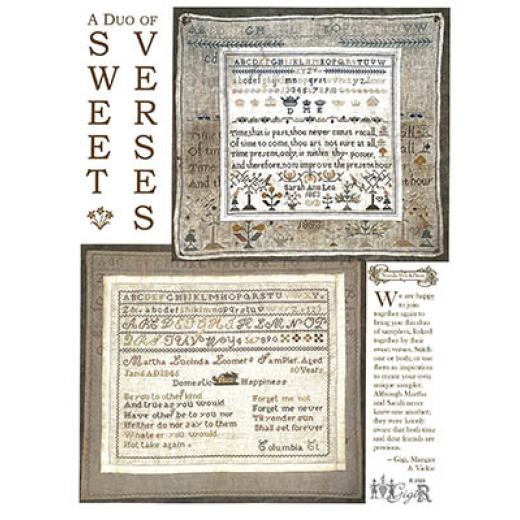 A DUO OF
SWEET
VERSES
ABCDEFGHIJKLMNOPQRSTUVW
D M E
Time, that is past, thou never canst recall,
Of time to come, thou art not sure at all,
Time present, only, is within thy power,
And therefore, now improve the present hour
Sarah Ann Lea
1863
ABCDEFGHIJKLMNOPQRSTUVWXY
Martha Lucinda Loomer's Sampler. Aged
Jan 6 AD 1846 10 Years
Domestic Happiness
Be you to other kind
And true as you would
Have other be to you nor
Neither do nor say to them
What er you would
Not take again.
Forget me not
Forget me never
Til yonder sun
Shall set forever
Columbia Ct
We are happy
to join
together again to
bring you this duo
of samplers, linked
together by their
sweet verses. Stitch
one or both, or use
them as inspiration
to create your own
unique sampler.
Although Martha
and Sarah never
knew one another,
they were keenly
aware that both time
and dear friends are
precious.
~ Gigi, Margan
& Vickie
Gigi R